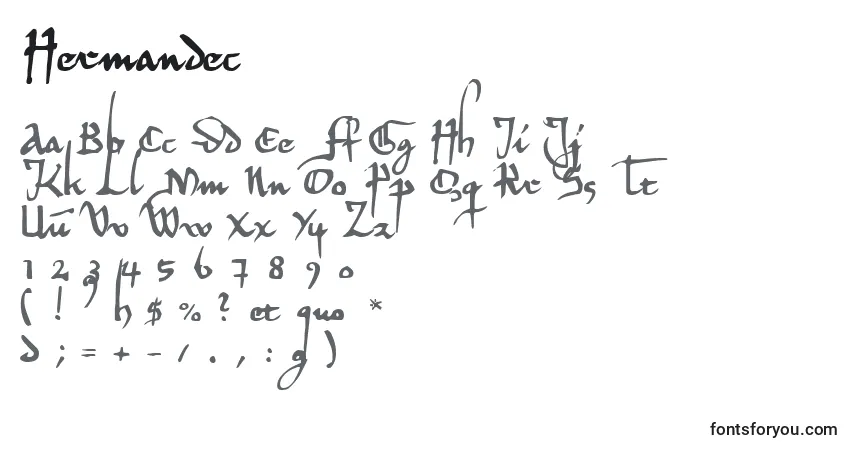 Hermandec
Aa Bb Cc Dd Ee Ff Gg Hh Ii Jj
Kk Ll Mm Nn Oo Pp Qq Rr Ss Tt
Uu Vv Ww Xx Yy Zz
1 2 3 4 5 6 7 8 9 0
( ! h $ % ? et quo *
d ; = + - / . , : g )
fontsforyou.com